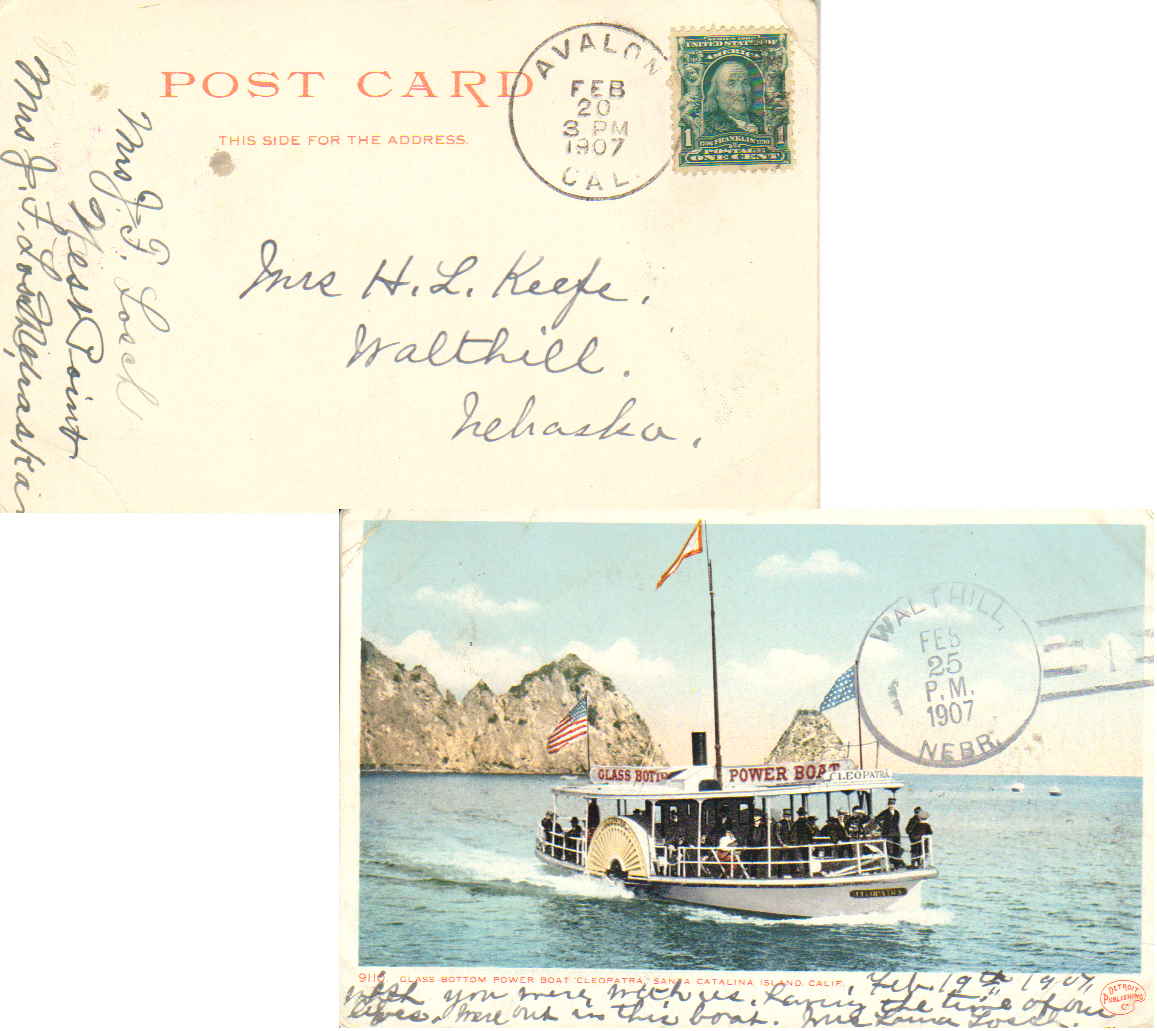 POST CARD
THIS SIDE FOR THE ADDRESS.
AVALON
FEB
20
3 PM
1907
CAL.
SERIES 1902
UNITED STATES OF
AMERICA
1 1706 FRANKLIN 1790 1
POSTAGE
ONE CENT
Mrs H. L. Keefe,
Walthill.
Nebraska,
Mrs J. F. Losch
West Point
Nebraska
Mrs J. F. Losch
WALTHILL,
FEB
25
P.M.
1907
NEBR.
1
GLASS BOTTOM
POWER BOAT
CLEOPATRA
CLEOPATRA
GLASS BOTTOM POWER BOAT "CLEOPATRA," SANTA CATALINA ISLAND, CALIF.
Feb 19th 1907,
wish you were with us. having the time of our
lives, were out in this boat. Mrs Losch
DETROIT
PUBLISHING
Co